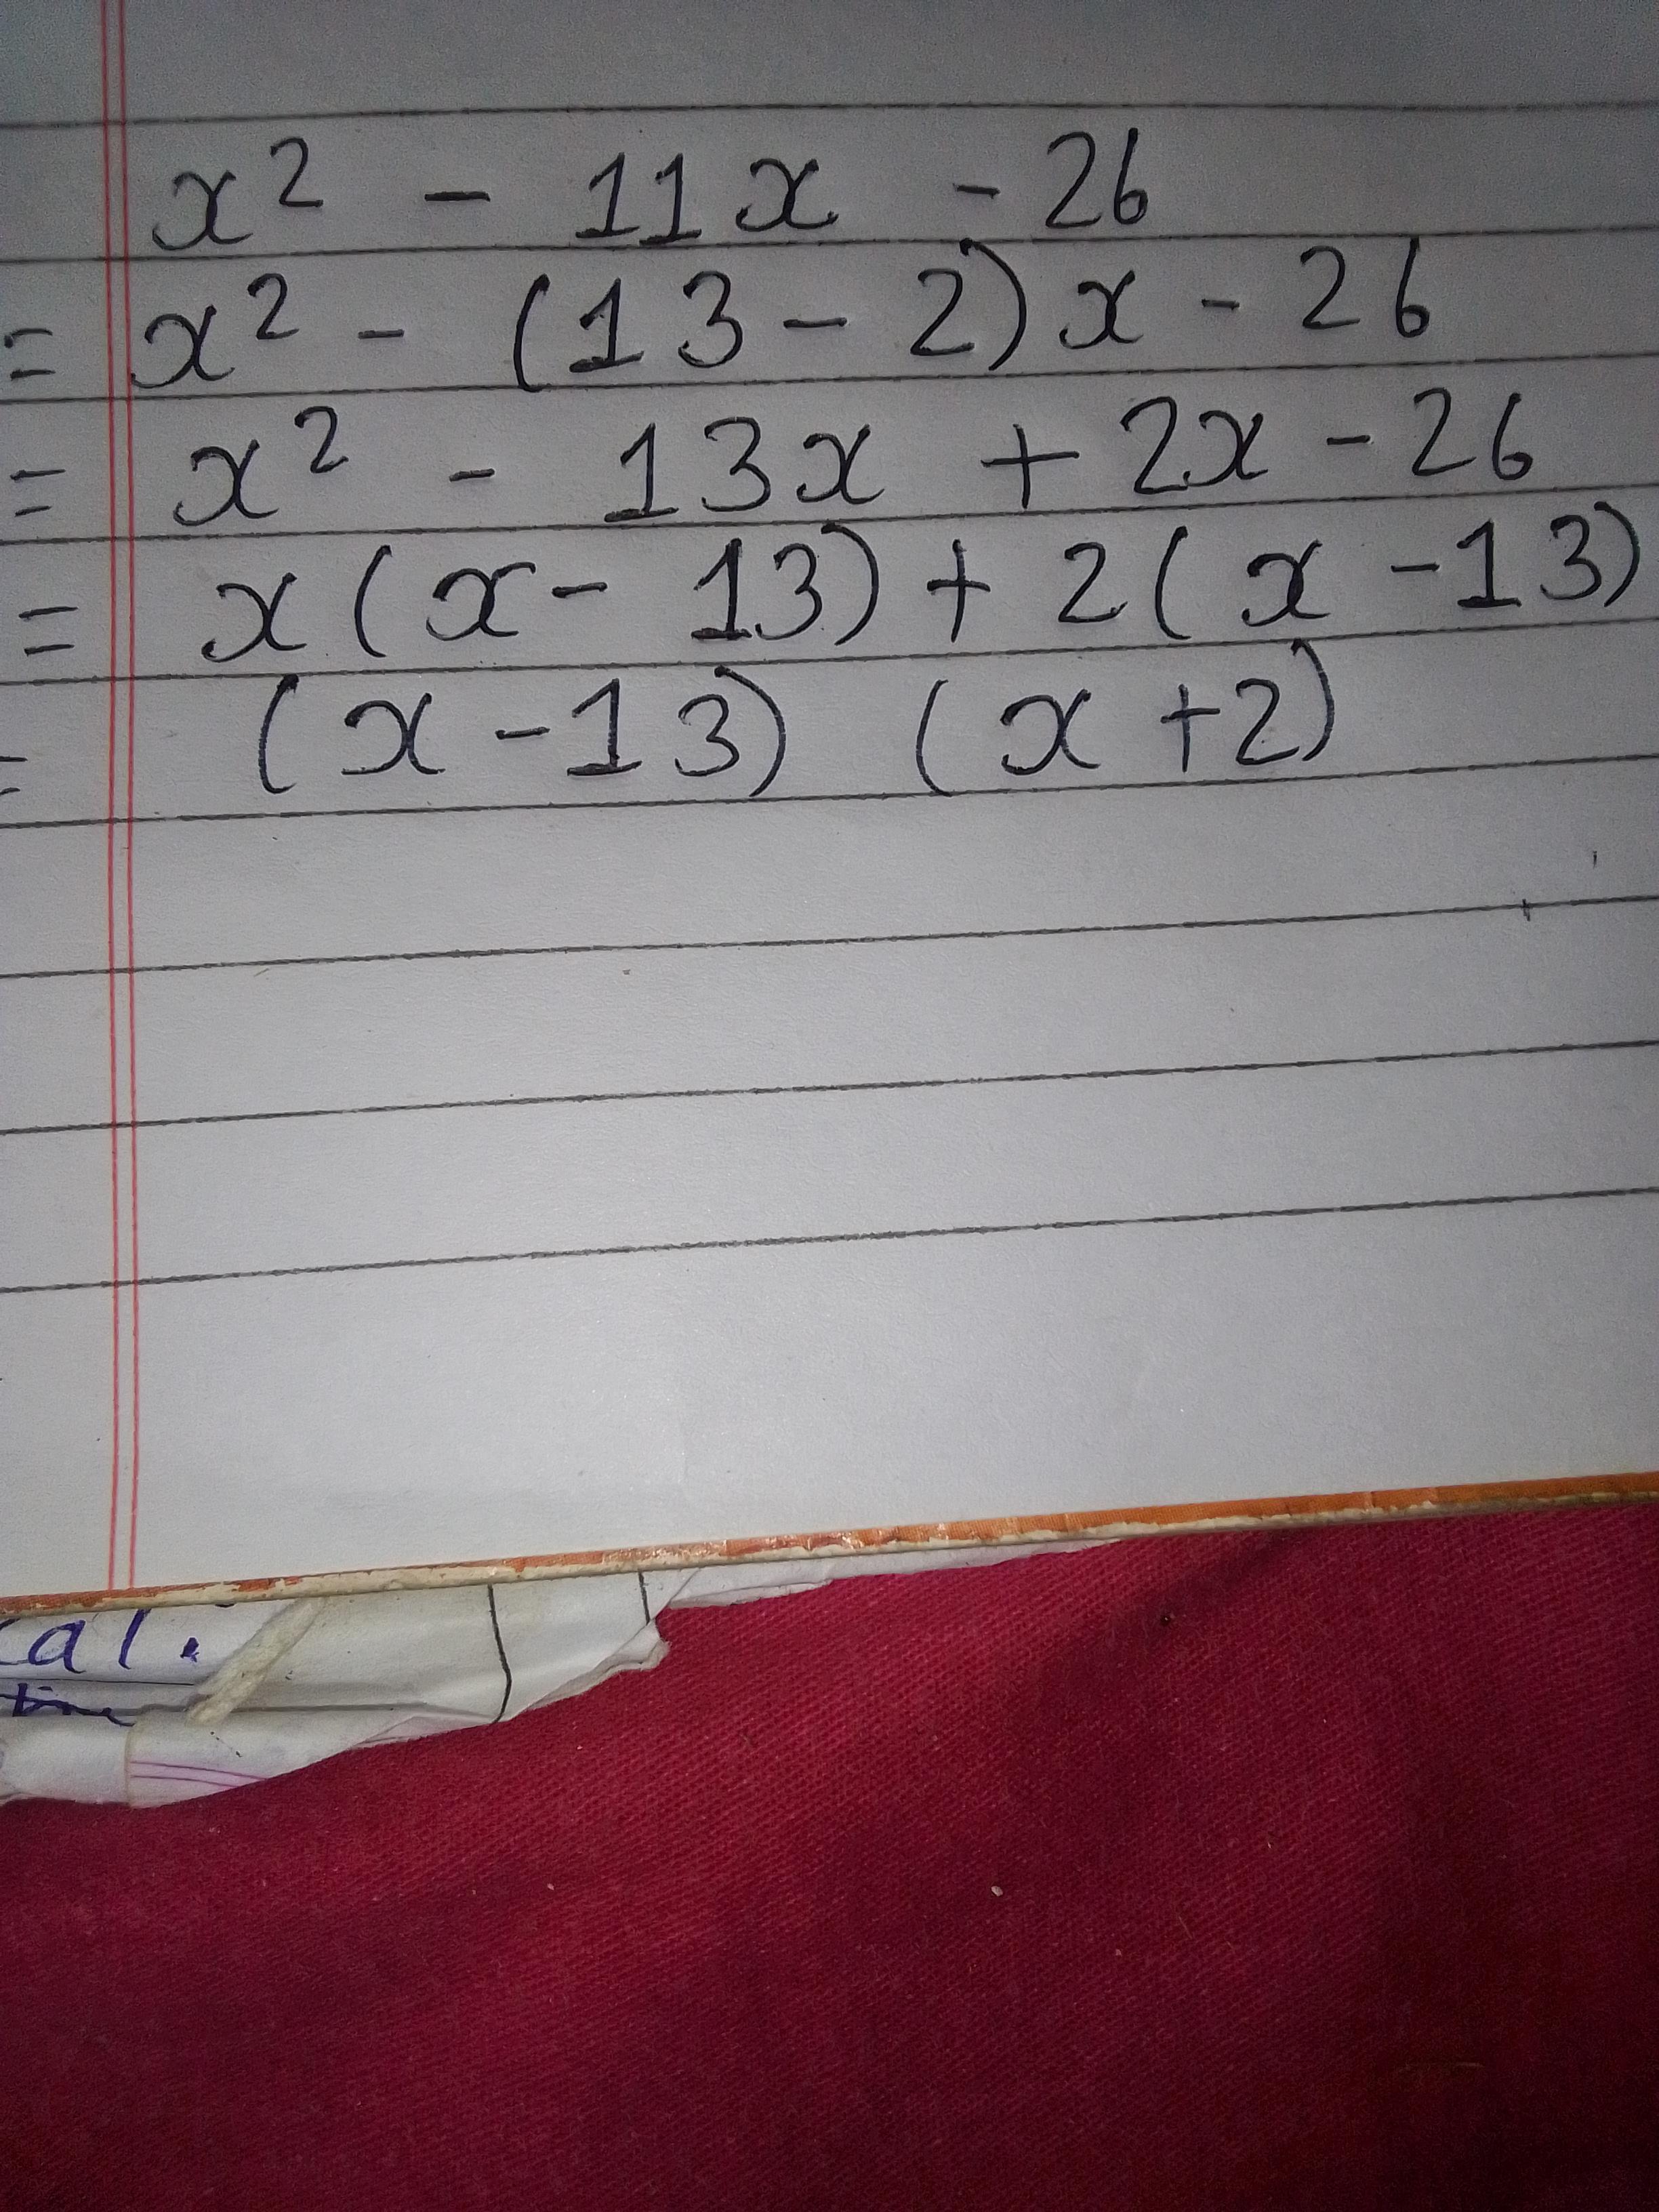 x² - 11x - 26
= x² - (13 - 2)x - 26
= x² - 13x + 2x - 26
= x(x - 13) + 2(x - 13)
= (x - 13) (x + 2)
cal.